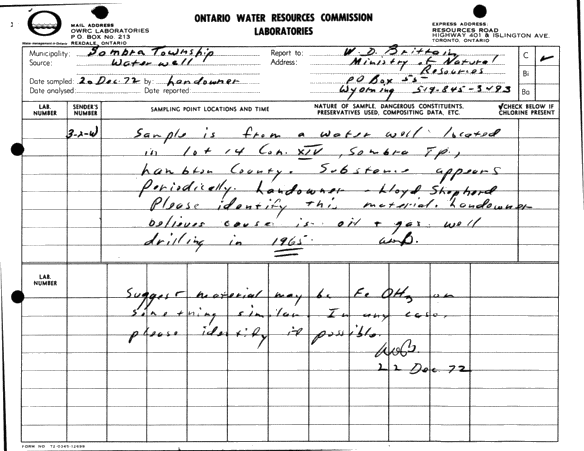 ONTARIO WATER RESOURCES COMMISSION
LABORATORIES
MAIL ADDRESS
OWRC LABORATORIES
P.O. BOX No. 213
REXDALE, ONTARIO
Water management in Ontario
EXPRESS ADDRESS:
RESOURCES ROAD
HIGHWAY 401 & ISLINGTON AVE.
TORONTO, ONTARIO
Municipality: Sombra Township
Source: Water well
Date sampled: 20 Dec. 72 by: Landowner
Date analysed: Date reported:
Report to: W. D. Brittain
Address: Ministry of Natural
Resources
PO Box 55
Wyoming 519-845-3493
C ✓
Bi
Ba
LAB. NUMBER
SENDER'S NUMBER
SAMPLING POINT LOCATIONS AND TIME
NATURE OF SAMPLE, DANGEROUS CONSTITUENTS, PRESERVATIVES USED, COMPOSITING DATA, ETC.
✓CHECK BELOW IF CHLORINE PRESENT
Sample is from a water well located
in Lot 14 Con. XIV, Sombra Tp.,
Lambton County. Substance appears
periodically. Landowner - Lloyd Shepherd
Please identify this material. Landowner
believes cause is oil & gas well
drilling in 1965.
LAB. NUMBER
Suggest material may be Fe OH3 or
something similar. In any case,
please identify if possible.
22 Dec 72
FORM NO.